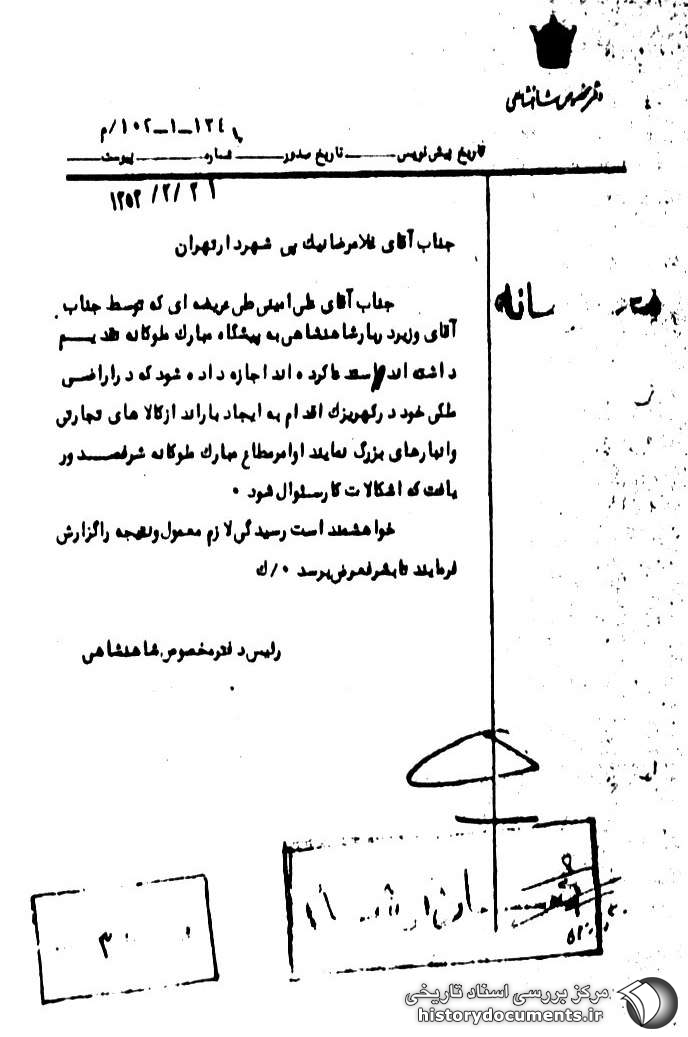 دفتر مخصوص شاهنشاهی
۱۰۲-۱-۱۲۴/م
تاریخ پیش نویس تاریخ صدور شماره پیوست
۱۳۵۲/۲/۲۹
جناب آقای غلامرضا نیک پی شهردار تهران
جناب آقای علی امینی طی عریضه ای که توسط جناب
آقای وزیر دربار شاهنشاهی به پیشگاه مبارک ملوکانه تقدیم
داشته اند استدعا کرده اند اجازه داده شود که در اراضی
ملکی خود در کهریزک اقدام به ایجاد باراندازکالا های تجارتی
وانبارهای بزرگ نمایند اوامر مطاع مبارک ملوکانه شرفصدور
یافت که اشکالات کار سئوال شود ۰
خواهشمند است رسیدگی لازم معمول و نتیجه را گزارش
فرمایند تا بشرفعرض برسد ۰/ک
رئیس دفتر مخصوص شاهنشاهی
مرکز بررسی اسناد تاریخی
historydocuments.ir